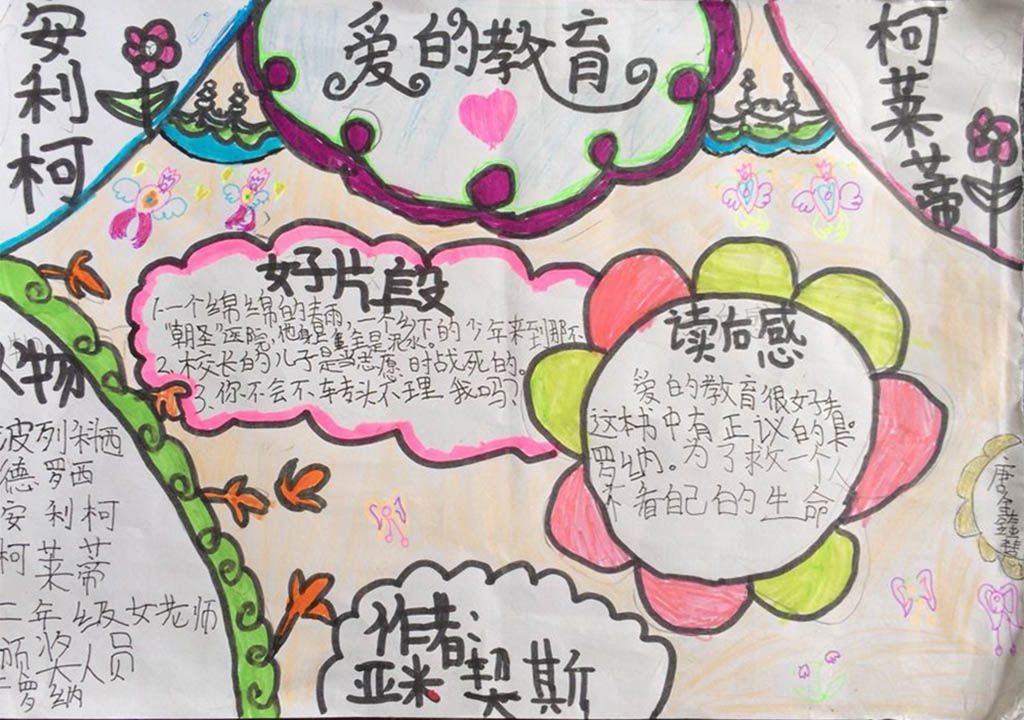 爱的教育
安利柯
柯莱蒂
好片段
1.一个绵绵的
"朝圣"医院,他身
一个乡下的少年来到那不
全是泥水。
2.校长的儿子是当志愿时战死的。
3.你不会不车专头不理我吗?
读后感
爱的教育很好看
这本书中有正议的集
罗纳。为了救一个人
不着自己白的生命
人物
波列科西
德罗西
安利柯
柯莱蒂
二年级女老师
颁奖人员
罗纳
作者:
亚米契斯